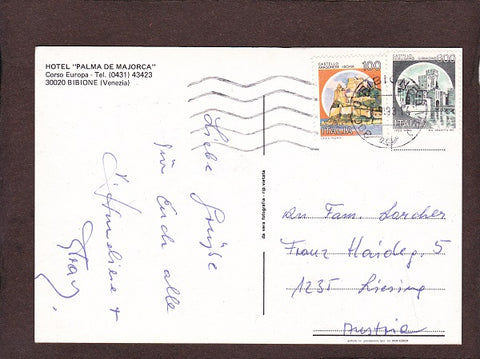 HOTEL "PALMA DE MAJORCA"
Corso Europa - Tel. (0431) 43423
30020 BIBIONE (Venezia)
Liebe Grüße
für Euch alle
+
da vera fotografia - rip. vietata
CASTELLO
ARAGONESE - ISCHIA
100
ITALIA
300
ITALIA
An Fam. Larcher
Franz Haideg. 5
1235 Liesing
Austria